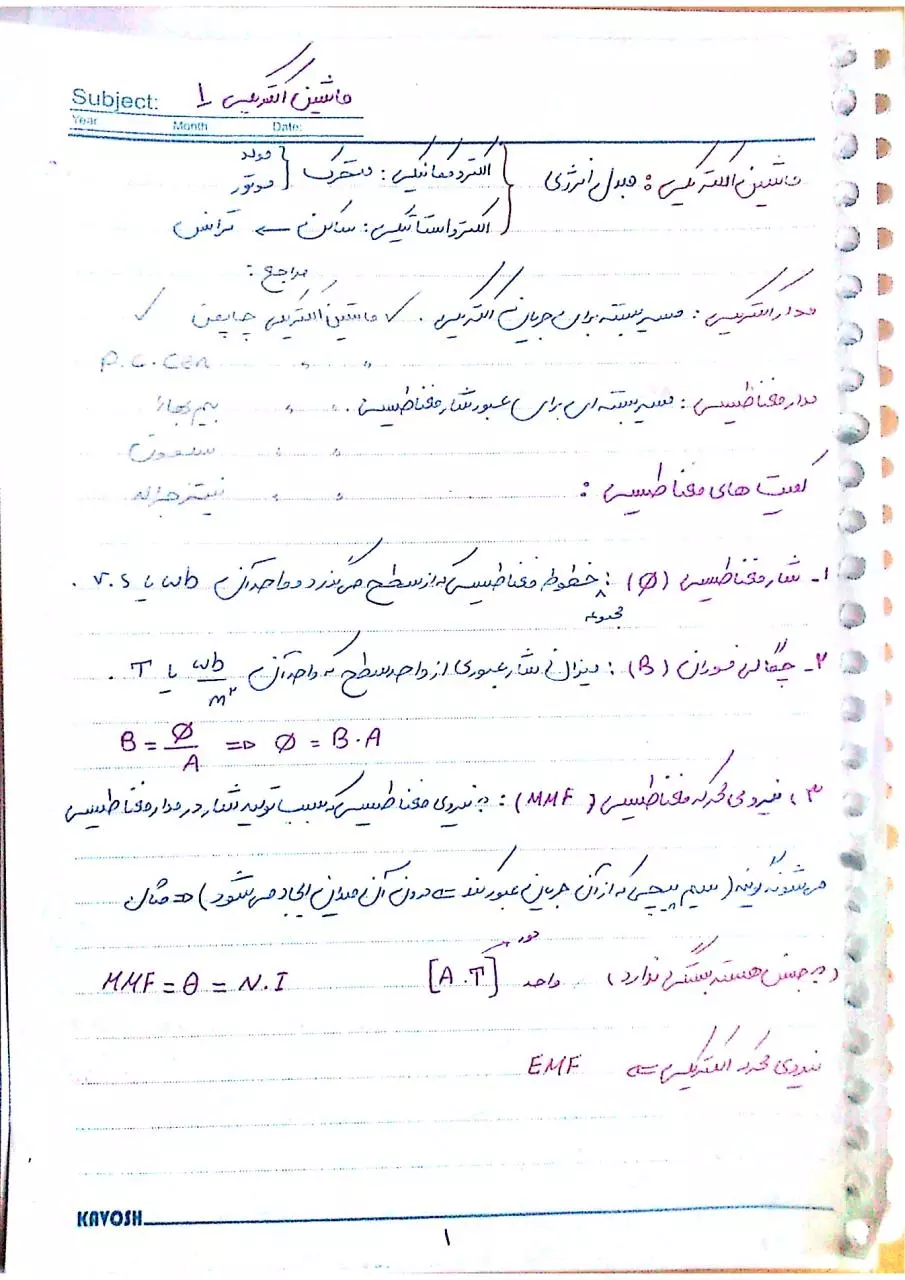 Subject: ماشین الکتریکی 1
Year Month Date:
ماشین الکتریکی : مبدل انرژی
الکترومکانیکی : متحرک
مولد
موتور
الکترواستاتیکی : ساکن ← ترانس
مراجع :
مدار الکتریکی : مسیر بسته برای جریان الکتریکی . ✓ ماشین الکتریکی چاپمن ✓
P.C.Sen " "
مدار مغناطیسی : مسیر بسته ای برای عبور شار مغناطیسی . " " بیم بهارا
" "
" "
کمیت های مغناطیسی :
۱- شار مغناطیسی (Ø) : مجموعه خطوط مغناطیسی که از سطح می گذرد و واحد آن wb یا v.s .
۲- چگالی فوران (B) : میزان شار عبوری از واحد سطح که واحد آن wb/m² یا T .
B = Ø/A ⇒ Ø = B.A
۳- نیروی محرکه مغناطیسی (MMF) : به نیروی مغناطیسی که سبب تولید شار در مدار مغناطیسی
می شود گویند ( سیم پیچی که از آن جریان عبور کند ← درون آن میدان ایجاد می شود ) ⇒ مثال
(به جنس هسته بستگی ندارد) واحد [A.T] دور MMF = θ = N.I
نیروی محرکه الکتریکی ← EMF
KAVOSH
۱